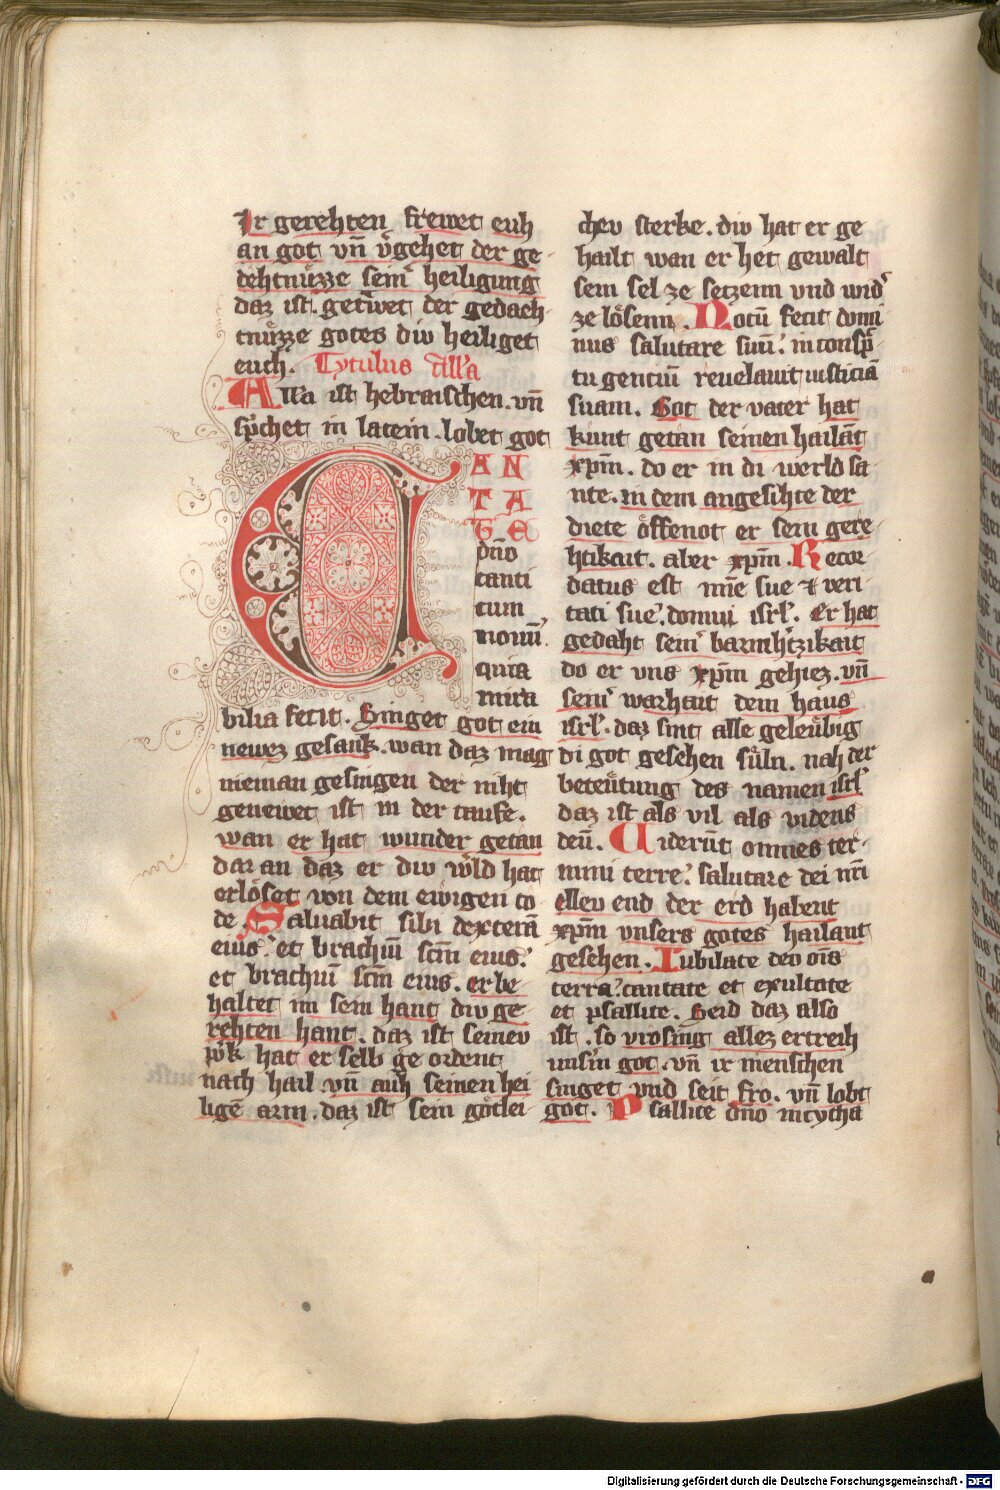 Ir gerehten frewet euh
an got vn̄ v̓gehet der ge-
dehtnuͤzze sein̓ heiligung
daz ist. getiwet der gedach-
tnuͤzze gotes div heiliget
euch. Tytulus Alla
Alla ist hebraischen. vn̄
sp̓chet in latein. lobet got
CAN
TA
TE
dn̄o
canti
cum
nouū.
quia
mira
bilia fecit. Singet got ein
newez gesank. wan daz mag
nieman gesingen der niht
genewet ist in der taufe.
wan er hat wunder getan
dar an daz er div w̓ld hat
erloͤset von dem ewigen to
de. Saluabit sibi dexterā
eius: et brachiū scm̄ eius:
et brachiū scm̄ eius. er be-
haltet im sein hant div ge-
rehten hant. daz ist seinev
w̓k hat er selb ge ordent
nach hail vn̄ auh seinen hei-
ligē arm. daz ist sein goͤtlei-
chev sterke. div hat er ge
hailt wan er het gewalt
sein sel ze setzenn vnd wid̓
ze loͤsenn. Notū fecit domi
nus salutare suū: in consp̄
tu gentiū reuelauit iusticiā
suam. Got der vater hat
kunt getan seinen hailāt
xpm̄. do er in di werld sa-
nte. in dem angesihte der
diete oͤffenot er sein gere-
htikait. aber xpm̄. Recor-
datus est mīe sue et veri
tati sue: domui isrl̓. Er hat
gedaht sein̓ barmh̓tzikait
do er vns xpm̄ gehiez. vn̄
sein̓ warhait dem haus
isrl̓. daz sint alle geleuͤbig
di got gesehen suͤln. nah der
beteuͤtung des namen isrl̓
daz ist als vil als videns
deū. Uiderūt omnes ter-
mini terre: salutare dei nr̄i
ellev end der erd habent
xpm̄ vnsers gotes hailant
gesehen. Iubilate deo om̄s
terra: cantate et exultate
et psallite. Seid daz also
ist. so vrosing allez ertreih
uns̓n got. vn̄ ir menschen
singet vnd seit fro. vn̄ lobt
got. Psallite dn̄o in cytha
Digitalisierung gefördert durch die Deutsche Forschungsgemeinschaft - DFG